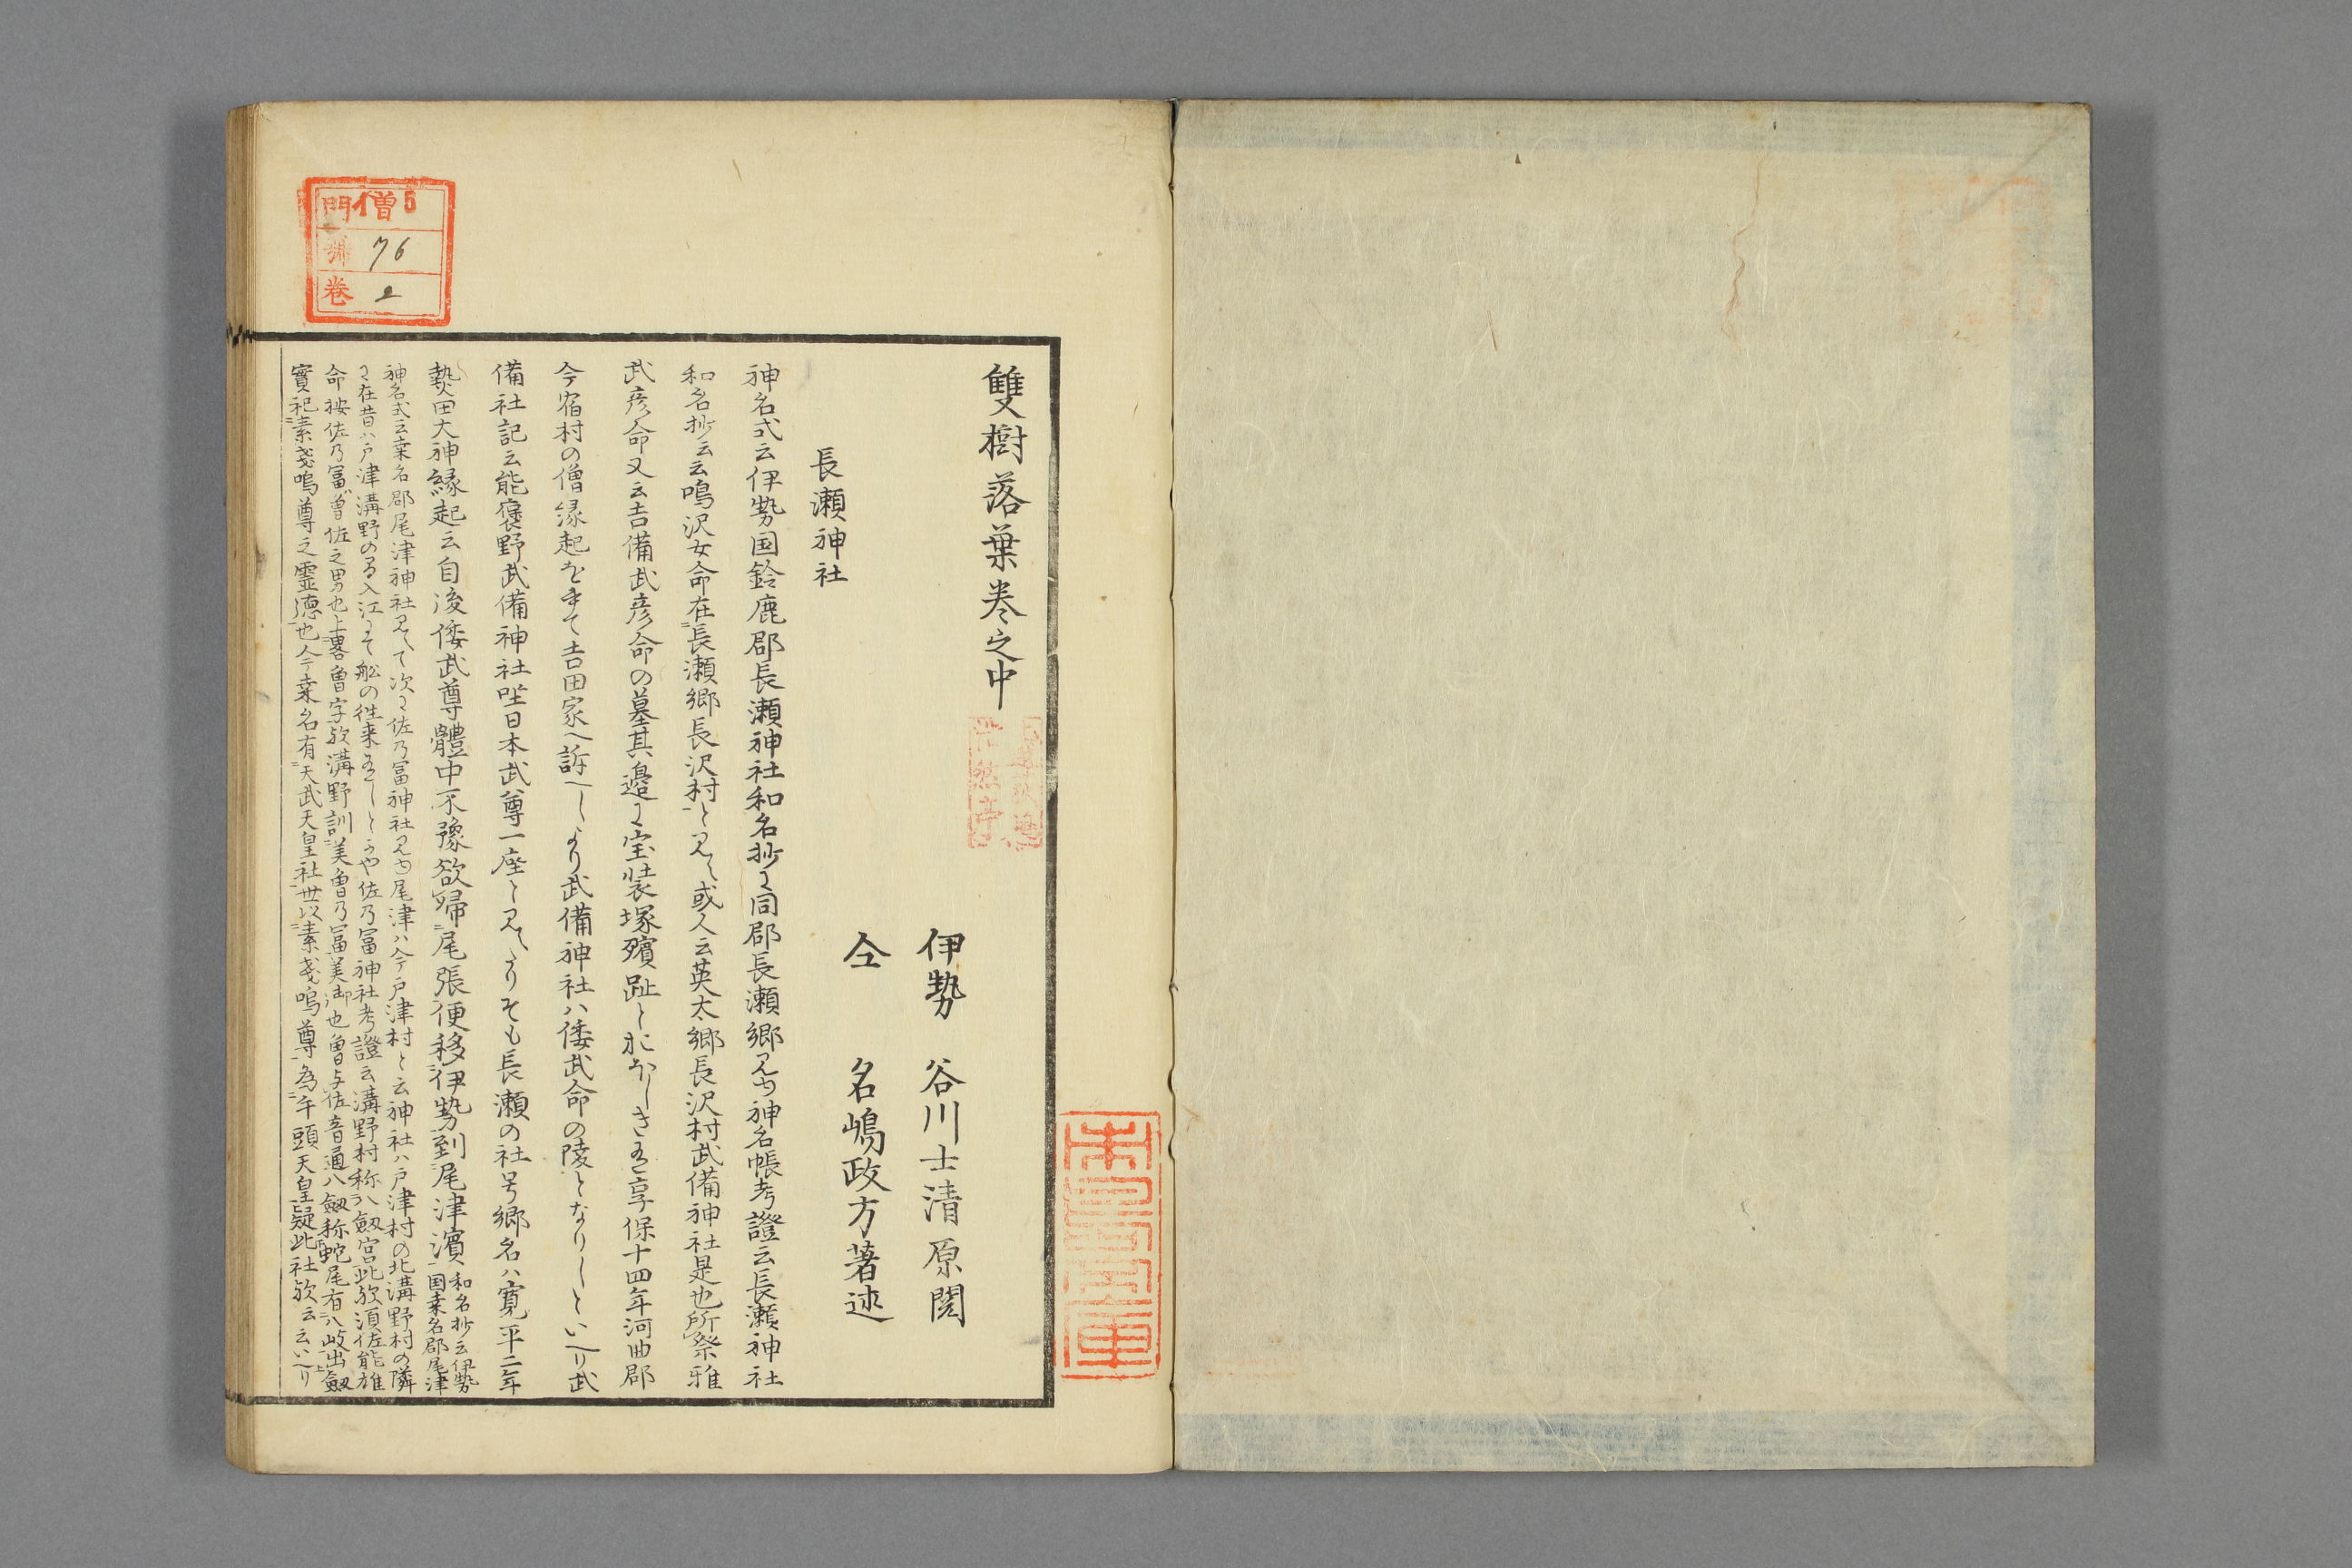 雙樹落葉巻之中
伊勢 谷川士清原閲
仝 名嶋政方著述
長瀬神社
神名式云伊勢国鈴鹿郡長瀬神社和名抄に同郡長瀬郷見ゆ神名帳考證云長瀬神社
和名抄云云鳴沢女命在長瀬郷長沢村と見へ或人云英太郷長沢村武備神社是也所祭雅
武彦命又云吉備武彦命の墓其邉に宝装塚殯趾とおほしきを享保十四年河曲郡
今宿村の僧縁起を以て吉田家へ訴へしより武備神社ハ倭武命の陵となりしといへり武
備社記云能褒野武備神社坐日本武尊一座と見へたりそも長瀬の社号郷名ハ寛平二年
熱田大神縁起云自後倭武尊體中不豫欲帰尾張便移伊勢到尾津濱
和名抄云伊勢
国桒名郡尾津
神名式云桒名郡尾津神社見へて次に佐乃冨神社見ゆ尾津ハ今戸津村と云神社ハ戸津村の北溝野村の隣
に在昔ハ戸津溝野の間入江にて舩の往来ありしとかや佐乃冨神社考證云溝野村称八劔宮此歟須佐能雄
命按佐乃冨曽佐之男也上畧曽字歟溝野訓美曽乃冨美御也曽与佐音通八劔称蛇尾有八岐出劔
實祀素戔嗚尊之霊徳也今桒名有天武天皇社世以素戔嗚尊為牛頭天皇疑此社歟云云いへり
門 僧5
號 76
巻 2